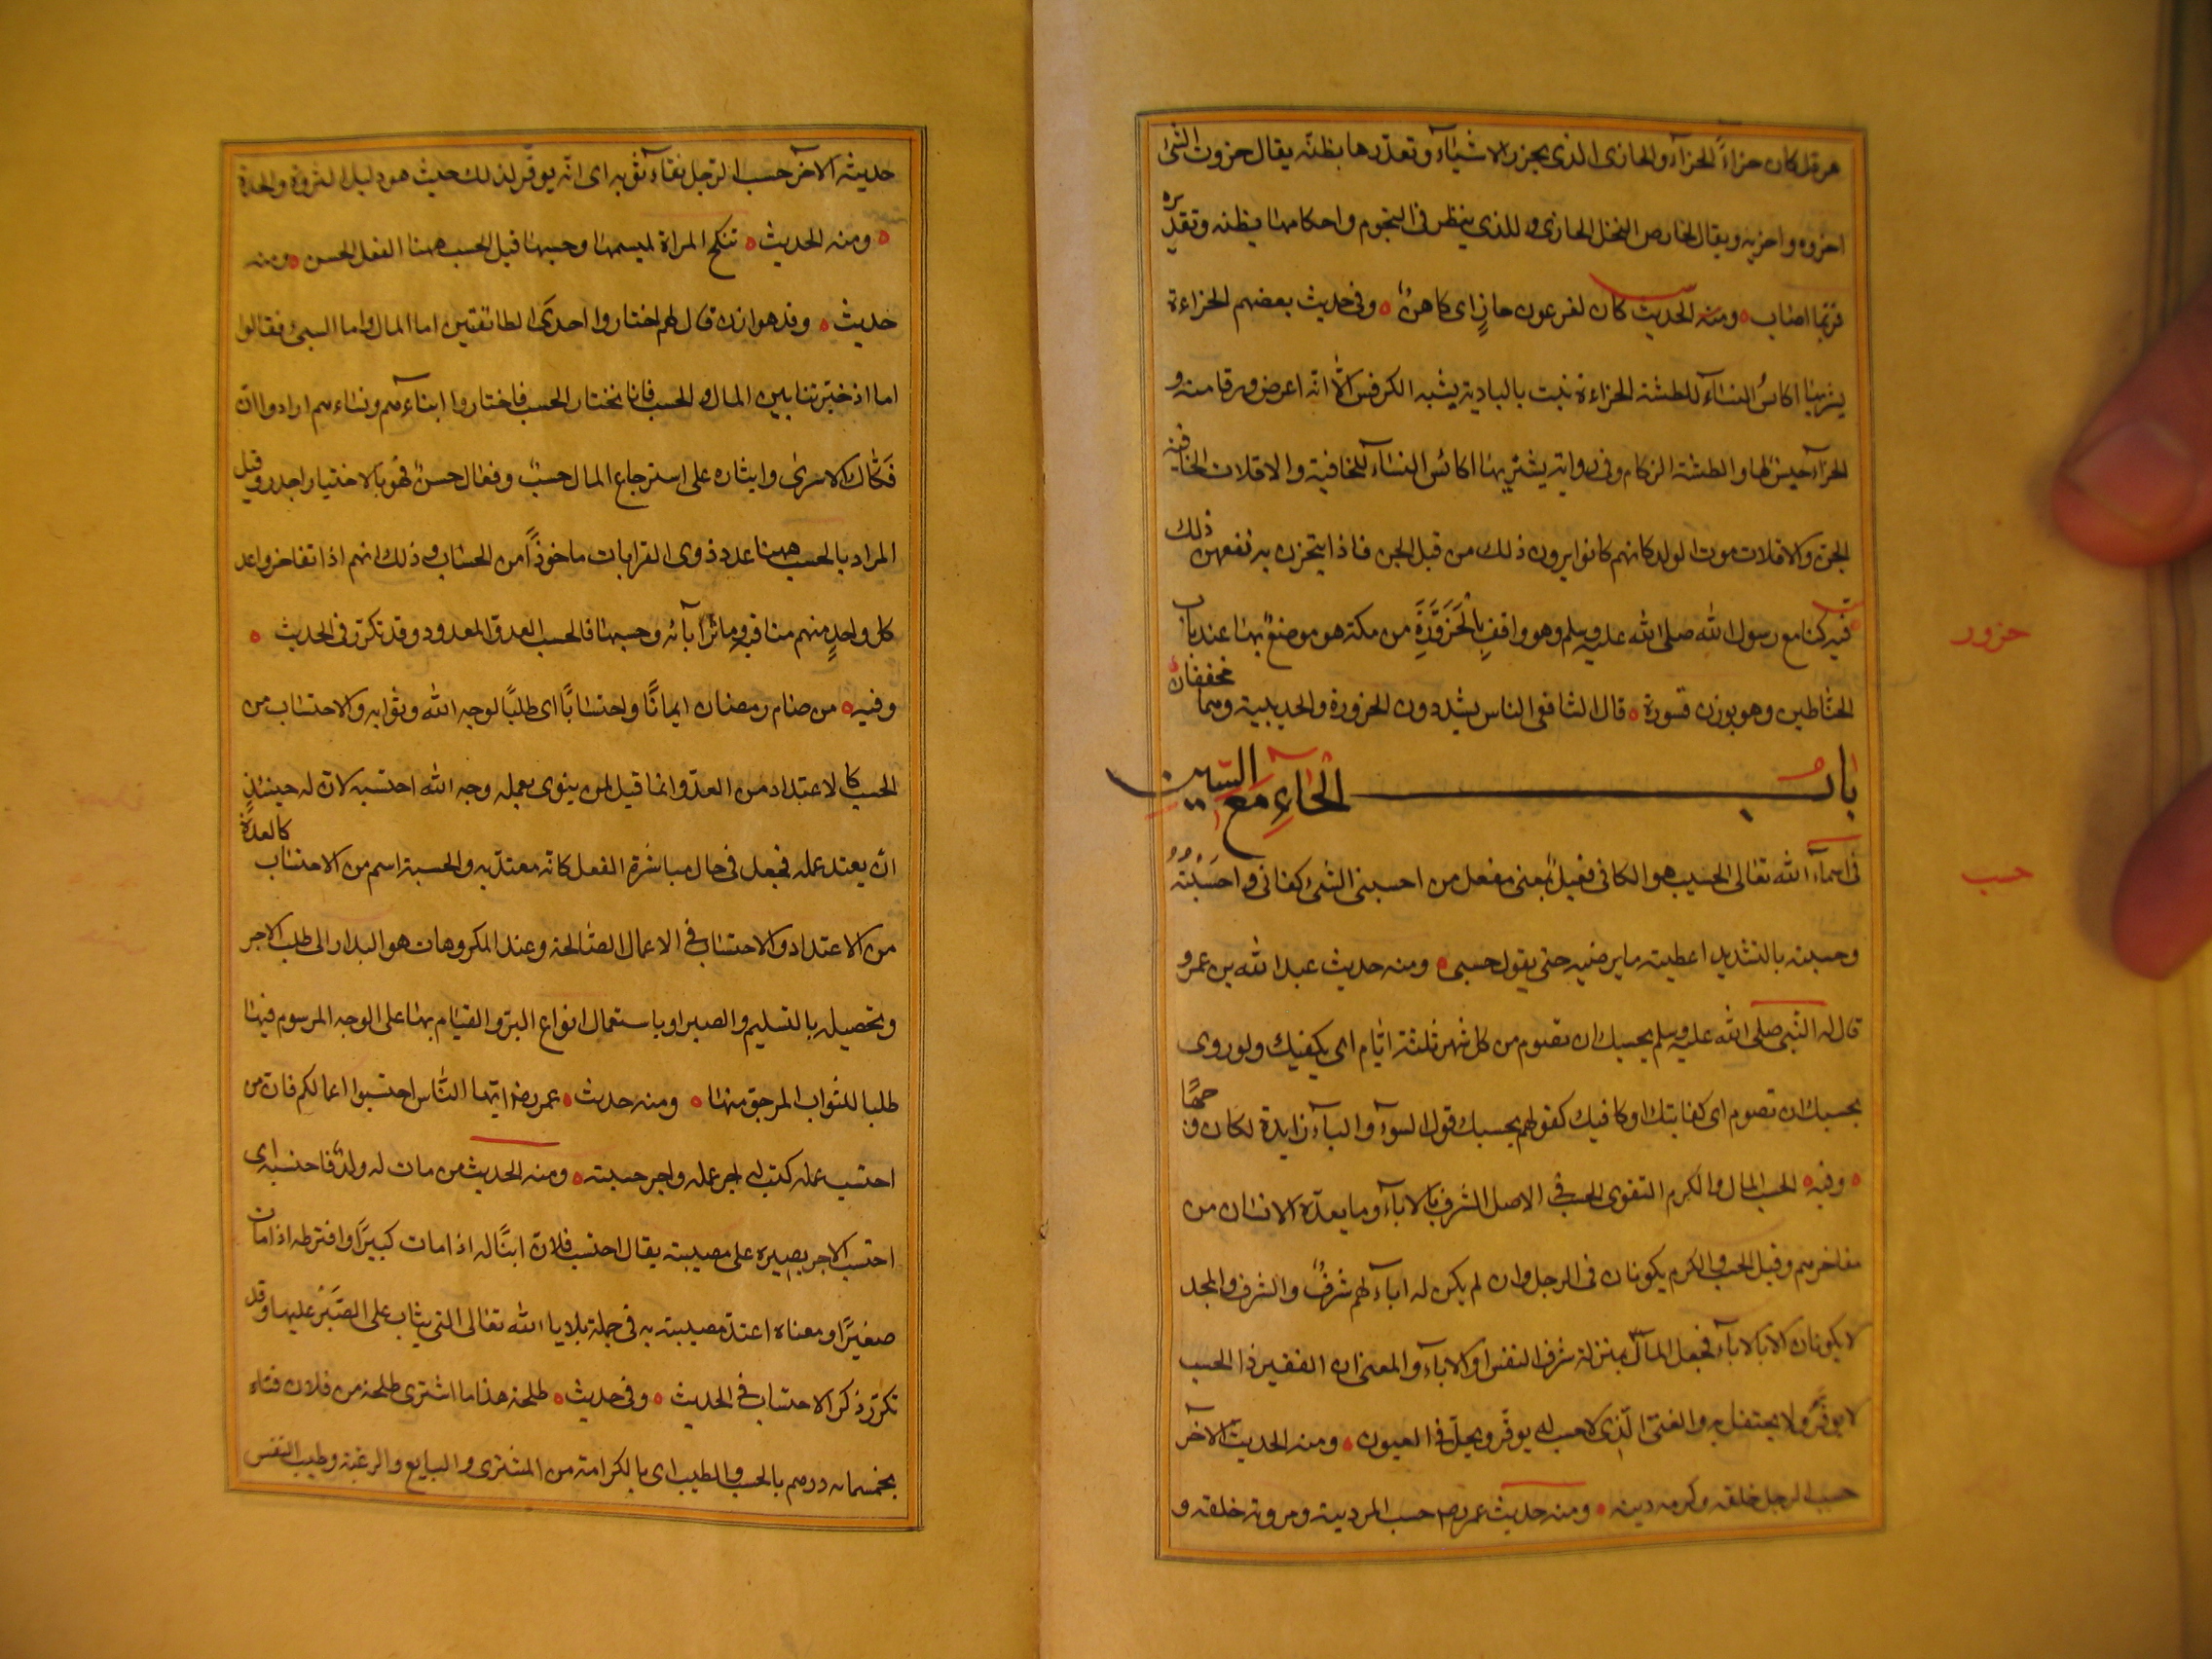 هرقل كان حزاءً الحزآء والحازى الذى يحزر الاشيآء وتعدّرها بظنّه يقال حزوت الشئ
احزوه واحزيه ويقال لخارص النخل الحازى وللذى ينظر فى النجوم واحكامها بظنه وتقديره
فربّما اصاب ومنه الحديث كان لفرعون حازٍ اى كاهنٌ وفى حديث بعضهم الحزاءة
يشربها اكائس النسآء للطشة الحزاءة نبت بالبادية يشبه الكرفس الّا انّه اعرض ورقا منه و
الحزآء جنس لها والطشة الزكام وفى رواية يشتريها اكائس النسآء للخافية والاقلات الخافية
الجن والاقلات موت الولد كانهم كانوا يرون ذلك من قبل الجن فاذا تبخرن به نفعهن ذلك
فيه كنا مع رسول الله صلى الله عليه وسلم وهو واقف بِالْحَزَوَّرَةِ من مكة هو موضعٌ بها عند باب
الحناطين وهو بوزن قسورة قال الشافعى الناس يشددون الحزورة والحديبية وهما مخففتان
حزور
باب الحآءِ مع السّين
حسب
فى اسمآء الله تعالى الحسيب هو الكافى فعيلٌ بمعنى مفعل من احسبنى الشئ كفانى واحسَبْتُهُ
وحسبته بالتشديد اعطيته ما يرضيه حتى يقول حسبى ومنه حديث عبد الله بن عمرو
قال له النّبى صلى الله عليه وسلم يحسبك ان تصوم من كل شهر ثلثة ايّام اى يكفيك ولو روى
بحسبك ان تصوم اى كفايتك او كافيك كقولهم بحسبك قول السوآء والبآء زايدة لكان وجهًا
وفيه الحسب المال والكرم التقوى الحسب فى الاصل الشرف بالابآء وما يعدّه الانسان من
مفاخرهم وقيل الحسب والكرم يكونان فى الرجل وان لم يكن له ابآء لهم شرفٌ والشرف والمجد
لا يكونان الا بالابآء فجعل المال بمنزلة شرف النفس او الابآء والمعنى ان الفقير ذا الحسب
لا يوقّر ولا يحتفل به والغنىّ الّذى لا حسب له يوقّر ويجلّ فى العيون ومنه الحديث الآخر
حسب الرجل خلقه وكرمه دينه ومنه حديث عمر رضه حسب المرء دينه ومروته خلقه و
حديثه الآخر حسب الرجل نقآء ثوبيه اى انّه يوقّر لذلك حيث هو دليل الثروة والجدة
ومنه الحديث تنكح المراة لميسمها وحسبها قيل الحسب ههنا الفعل الحسن ومنه
حديث وفد هوازن قال لهم اختاروا احدى الطائفتين اما المال واما السبى فقالوا
اما اذ خيّرتنا بين المال والحسب فانا نختار الحسب فاختاروا ابنآءهم ونساءهم ارادوا ان
فكاك الاسرى وايثاره على استرجاع المال حسبٌ وفعال حسنٌ فهو بالاختيار اجدر وقيل
المراد بالحسب ههنا عدد ذوى القرابات ماخوذًا من الحساب وذلك انهم اذا تفاخروا عد
كل واحدٍ منهم مناقبه وماثر آبائه وحسبها فالحسب العد والمعدود وقد تكرّر فى الحديث
وفيه من صام رمضان ايمانًا واحتسابًا اى طلبًا لوجه الله وثوابه والاحتساب من
الحسب كالاعتداد من العدّ وانما قيل لمن ينوى بعمله وجه الله احتسبه لانّ له حينئذٍ
انّ يعتد عمله فجعل فى حال مباشرة الفعل كانّه معتدّ به والحسبة اسم من الاحتساب كالعدّة
من الاعتداد والاحتساب فى الاعمال الصّالحة وعند المكروهات هو البدار الى طلب الاجر
وتحصيله بالتسليم والصبر او باستعمال انواع البرّ والقيام بها على الوجه المرسوم فيها
طلبا للثواب المرجوّ منها ومنه حديث عمر رضه ايّها النّاس احتسبوا اعمالكم فانّ من
احتسب عمله كتب له اجر عمله واجر حسبته ومنه الحديث من مات له ولدٌ فاحتسبه اى
احتسب الاجر بصبره على مصيبته يقال احتسب فلانٌ ابنًا له اذا مات كبيرًا وافترطه اذا مات
صغيرًا ومعناه اعتدّ مصيبته به فى جملة بلايا الله تعالى التى يثاب على الصّبر عليها وقد
تكرّر ذكر الاحتساب فى الحديث وفى حديث طلحة هذا ما اشترى طلحة من فلان فتاه
بخمسمائه درهم بالحسب والطيب اى بالكرامة من المشترى والبايع والرغبة وطيب النفس